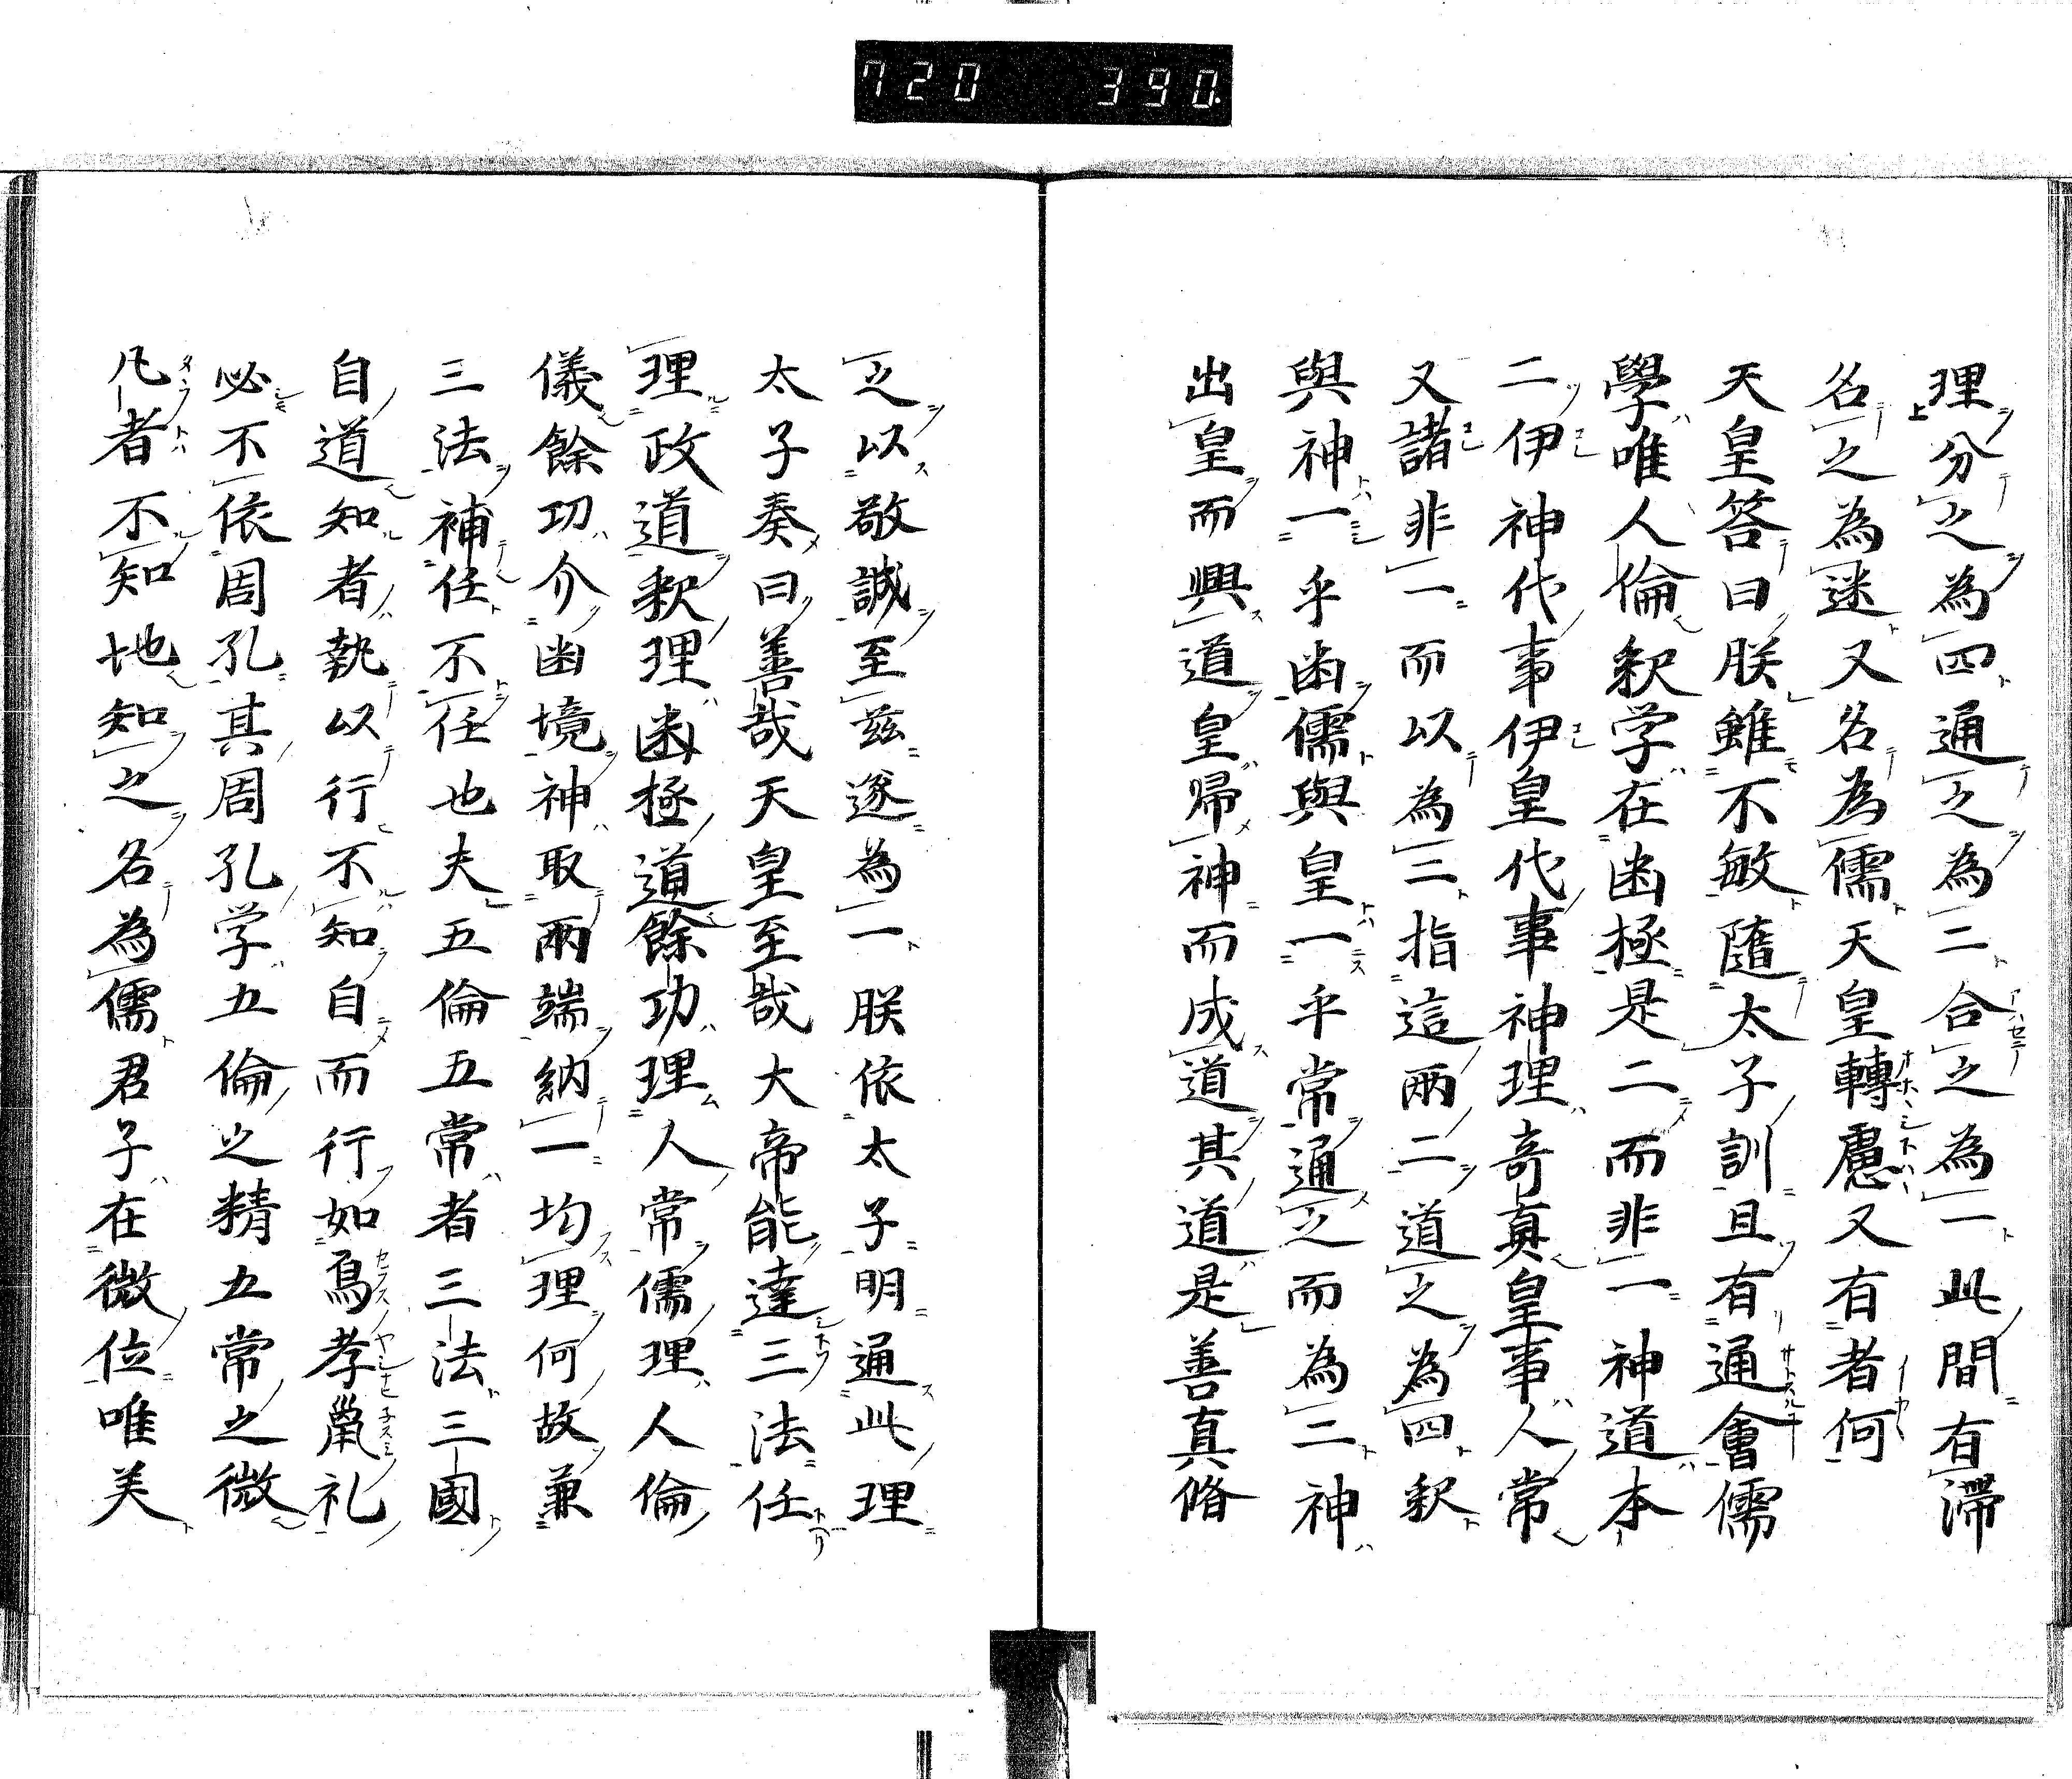 720 390.
理分之為四通之為三合之為一此間有滞
名之為迷又名為儒天皇轉慮又有者何
天皇答曰朕雖不敏隨太子訓且有通會儒
學唯人倫釈学在幽極是二而非一神道本
二伊神代事伊皇代事神理奇真皇事人常
又諸非一而以為三指這兩二道之為四釈
與神一乎幽儒與皇一乎常通之而為二神
出皇而興道皇帰神而成道其道是善真脩
之以敬誠至茲遂為一朕依太子明通此理
太子奏曰善哉天皇至哉大帝能達三法任
理政道釈理幽極道餘功理人常儒理人倫
儀餘功介幽境神取兩端納一均理何故兼
三法補任不任也夫五倫五常者三法三國
自道知者執以行不知自而行如烏孝鼠礼
必不依周孔其周孔学五倫之精五常之微
凡者不知地知之名為儒君子在微位唯美